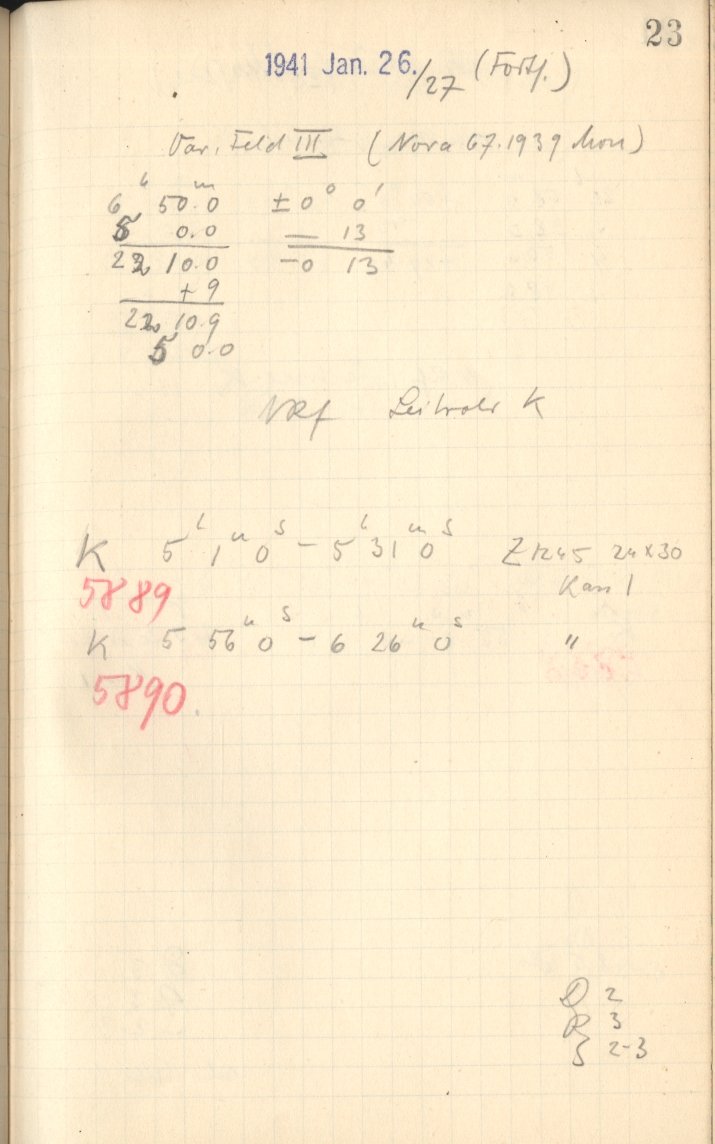 23
1941 Jan. 26./27 (Fortf.)
Var. Feld III (Nova 67.1939 Mon)
6ʰ 50ᵐ.0 ±0° 0'
5 0.0 — 13
22 10.0 -0 13
+ 9
22 10.9
5 0.0
K
K 5ʰ 1ᵐ 0ˢ - 5ʰ 31ᵐ 0ˢ Z 1245 24x30
5889 Kass 1
K 5 56ᵐ 0ˢ - 6 26ᵐ 0ˢ "
5890
D 2
R 3
S 2-3